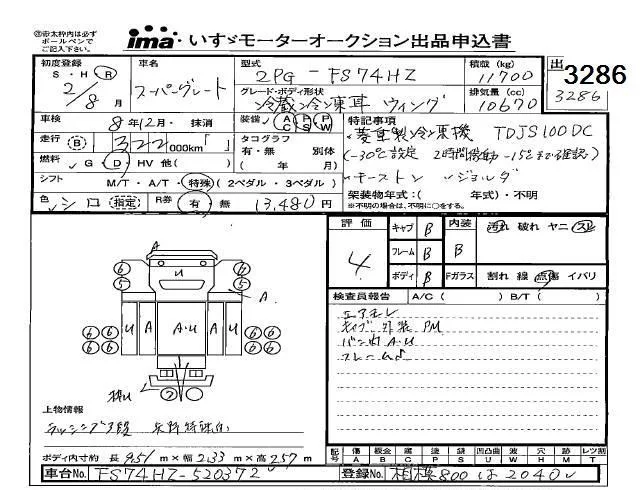 ※赤太枠内は必ず
ボールペンで
ご記入下さい。
ima いすゞモーターオークション出品申込書
初度登録 車名 型式 積載 (kg) 出
S・H・R 2/8月 スーパーグレート 2PG-FS74HZ 11700 3286
グレード・ボディ形状 排気量 (cc) 3286
冷蔵冷凍車 ウィング 10670
車検 8年12月・抹消 装備 AC PS PW 特記事項
走行 B 322,000km「 」 タコグラフ 有・無 別体 ( 年 月) 菱重製冷凍機 TDJS100DC
燃料 G D HV 他( ) (-30℃設定 2時間稼動-15℃まで確認)
シフト M/T・A/T・特殊 (2ペダル・3ペダル) キーストン ジョルダ
架装物年式:( 年式)・不明
※不明の場合は、不明に○をする。
色 シロ 指定 R券 有 無 13,480円
評価 4 キャブ B 内装 B 汚れ 破れ ヤニ スレ
フレーム B
ボディ B Fガラス 割れ 線 点傷 イバリ
検査員報告 A/C ( ) B/T ( )
エアモレ
キャブ外装 PM
バン内 A・U
フレームS
A
U
6 5 6 5
A
6 6 6 6
U A A・U A U
上物情報
ラッシング2段
ボディ内寸約 長 9.51 m×幅 2.33 m×高 2.57 m
記号 傷 A 板金 B 腐 C 塗 P 錆 S 凹凸曲 U 波 W 穴 H 跡 M レンズ割 T
車台No. FS74HZ-520372 登録No. 相模 800 は 2040